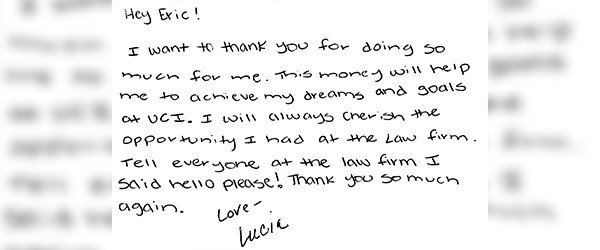 Hey Eric!
I want to thank you for doing so
much for me. This money will help
me to achieve my dreams and goals
at UCI. I will always cherish the
opportunity I had at the Law firm.
Tell everyone at the law firm I
said hello please! Thank you so much
again.
Love-
Lucia